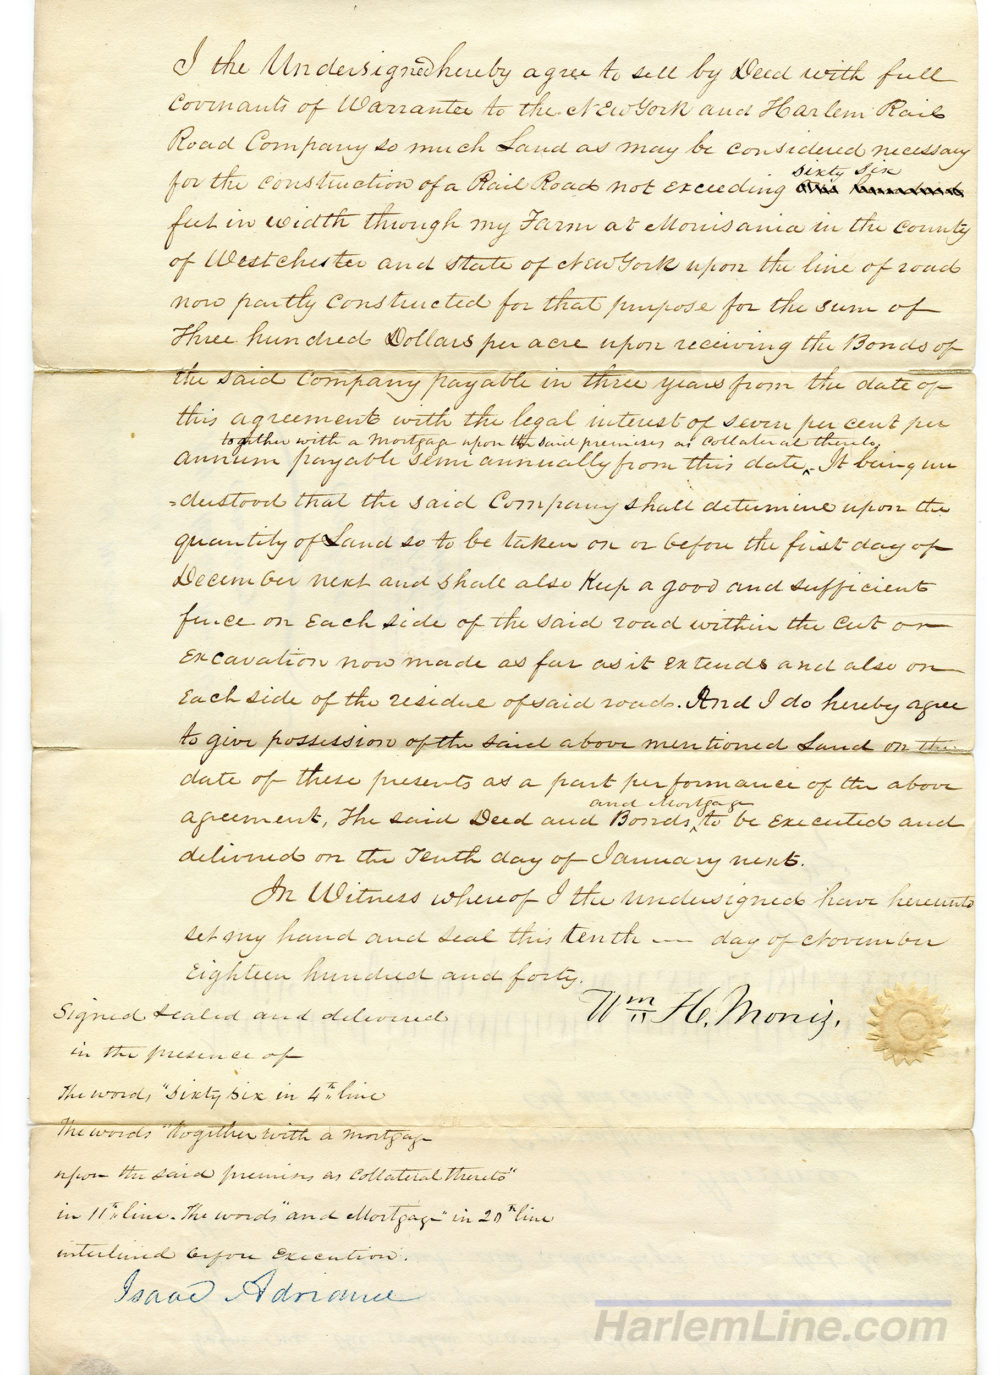 I the Undersigned hereby agree to sell by Deed with full
covenants of Warrantee to the New York and Harlem Rail
Road Company so much Land as may be considered necessary
sixty six
for the construction of a Rail Road not exceeding
feet in width through my Farm at Morrisania in the county
of Westchester and State of New York upon the line of road
now partly constructed for that purpose for the sum of
Three hundred Dollars per acre upon receiving the Bonds of
the said Company payable in three years from the date of
this agreement with the legal interest of seven per cent per
together with a Mortgage upon the said premises as collateral thereto,
annum payable semi annually from this date. It being un
-derstood that the said Company shall determine upon the
quantity of Land so to be taken on or before the first day of
December next and shall also Keep a good and sufficient
fence on Each side of the said road within the cut or
Excavation now made as far as it Extends and also on
Each side of the residue of said road. And I do hereby agree
to give possession of the said above mentioned Land on the
date of these presents as a part performance of the above
and Mortgage
agreement, The said Deed and Bonds, to be Executed and
delivered on the Tenth day of January next.
In Witness whereof I the undersigned have hereunto
set my hand and seal this tenth — day of November
Eighteen hundred and forty.
Wm H. Morris.
Signed sealed and delivered
in the presence of
The words "Sixty six in 4th line
The words "together with a mortgage
upon the said premises as Collateral thereto"
in 11th line. The words "and Mortgage" in 20th line
interlined before Execution.
Isaac Adriance
HarlemLine.com